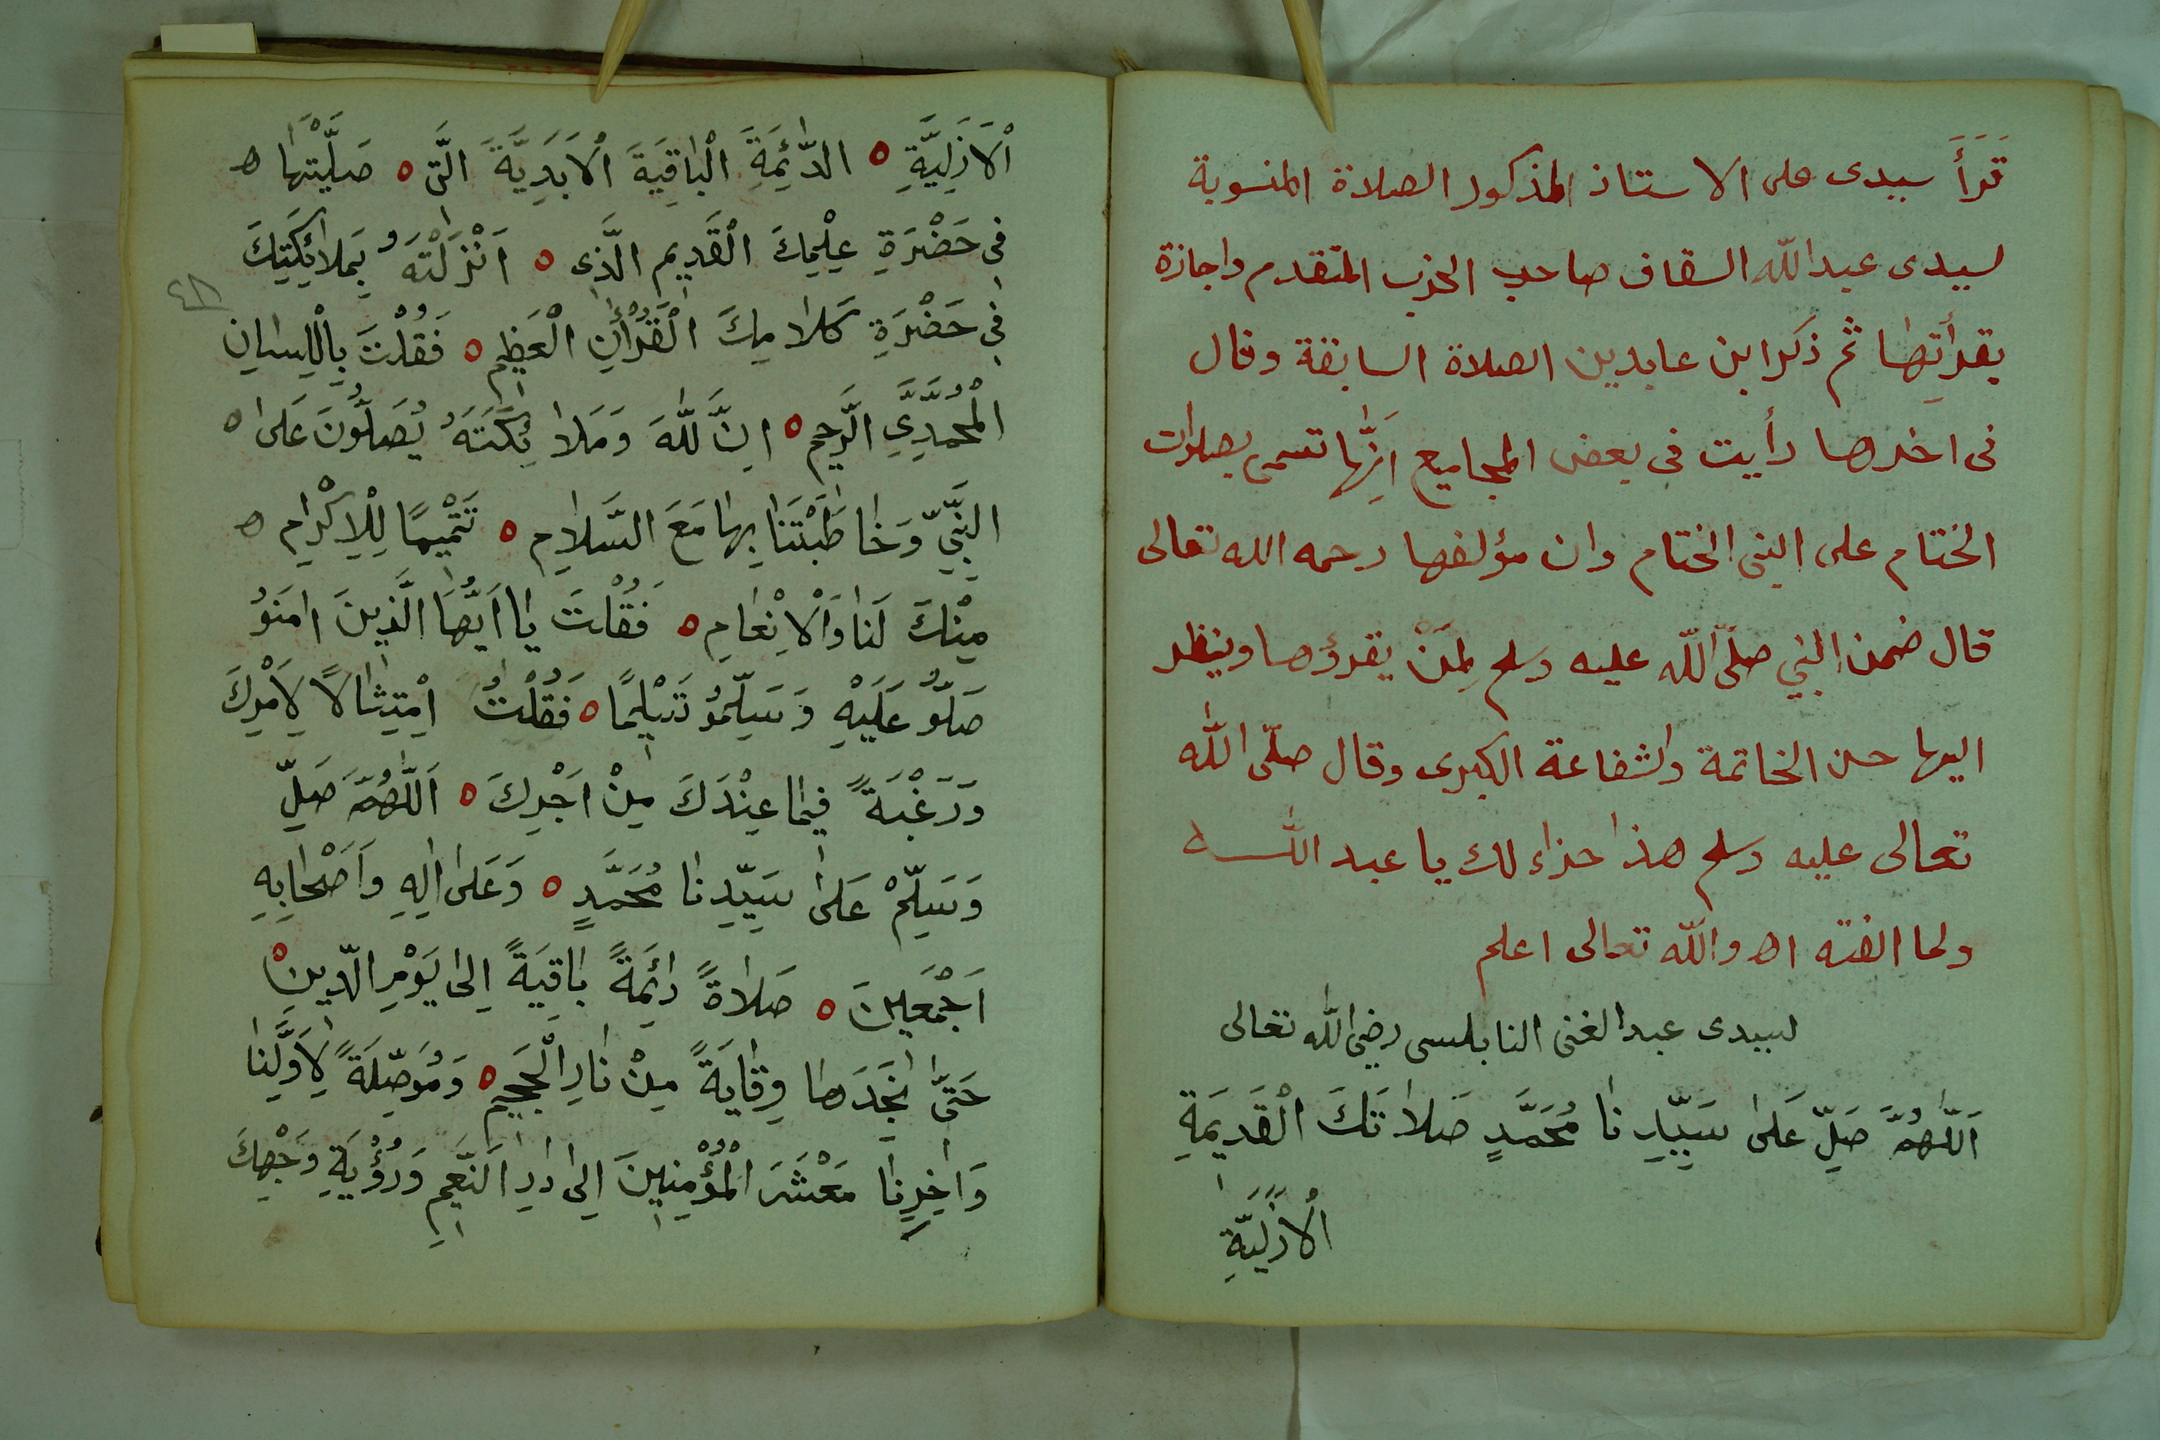 قَرَأَ سيدى على الاستاذ المذكور الصلاة المنسوبة
لسيدى عبد الله السقاف صاحب الحزب المتقدم واجازة
بقرأتِها ثم ذكر ابن عابدين الصلاة السابقة وقال
فى اخرها رأيت في بعض المجاميع اَنِّها تسمى بصلوات
الختام على النبى الختام وان مؤلفها رحمه الله تعالى
قال ضمن النبي صلّى الله عليه وسلم لِمَنْ يقرؤها وينظر
اليها حسن الخاتمة والشفاعة الكبرى وقال صلّى الله
تعالى عليه وسلم هذا جزاء لك يا عبد الله
ولما الفته اه والله تعالى اعلم
لسيدى عبد الغنى النابلسى رضي الله تعالى
اَللّٰهُمَّ صَلِّ عَلىٰ سَيِّدِنٰا مُحَمَّدٍ صَلاٰتَكَ الْقَدِيمَةِ
الْاَزَلِيَّةِ
اْلاَزَلِيَّةِ ه الدّٰائِمَةِ الْبٰاقِيَةَ اْلاَبَدِيَّةَ الَّتى ه صَلَّيْتَهٰا ه
فِى حَضْرَةِ عِلْمِكَ الْقَدِيمِ الَّذِى ه اَنْزَلْتَهُ بِمَلاٰئِكَتِكَ
٤٨
فِى حَضْرَةِ كَلاٰمِكَ الْقُرْاٰنِ الْعَظِيمِ ه فَقُلْتَ بِالْلِسٰانِ
الْمُحَمَّدِيِّ الرَّحِيمِ ه اِنَّ اللّٰهَ وَمَلاٰئِكَتَهُ يُصَلُّونَ عَلىٰ ه
النَّبِيِّ وَخٰاطَبْتَنَا بِهٰا مَعَ السَّلاٰمِ ه تَتْمِيمًا لِلْاِكْرٰامِ ه
مِنْكَ لَنٰا وَاْلاِنْعٰامِ ه فَقُلْتَ يٰا اَيُّهَا الَّذِينَ اٰمَنُو
صَلُّو عَلَيْهِ وَسَلِّمُو تَسْلِيمًا ه فَقُلْتُ اِمْتِثٰالًا لِاَمْرِكَ
وَرَغْبَةً فِيمٰا عِنْدَكَ مِنْ اَجْرِكَ ه اَللّٰهُمَّ صَلِّ
وَسَلِّمْ عَلىٰ سَيِّدِنٰا مُحَمَّدٍ ه وَعَلىٰ اٰلِهِ وَاَصْحٰابِهِ
اَجْمَعِينَ ه صَلاٰةً دٰائِمَةً بٰاقِيَةً اِلىٰ يَوْمِ الدّينِ ه
حَتّٰى نَجِدَهٰا وِقٰايَةً مِنْ نٰارِ الْجَحِيمِ ه وَمُوَصِّلَةً لِاَوَّلِنٰا
وَاٰخِرِنٰا مَعْشَرَ الْمُؤْمِنِينَ اِلىٰ دٰارِ النَّعِيمِ وَرُؤْيَةِ وَجْهِكَ